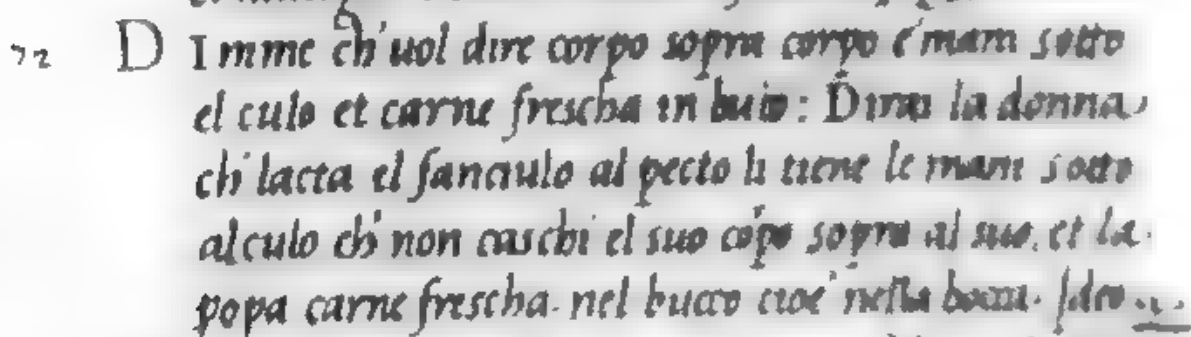 72 D Imme ch' uol dire corpo sopra corpo e' mani sotto
el culo et carne frescha in buio: Dirai la donna
ch' lacta el fanciulo al pecto li tiene le mani sotto
al culo ch' non caschi el suo cõpo sopra al suo. et la
popa carne frescha. nel bucco cioe' nella bocca.